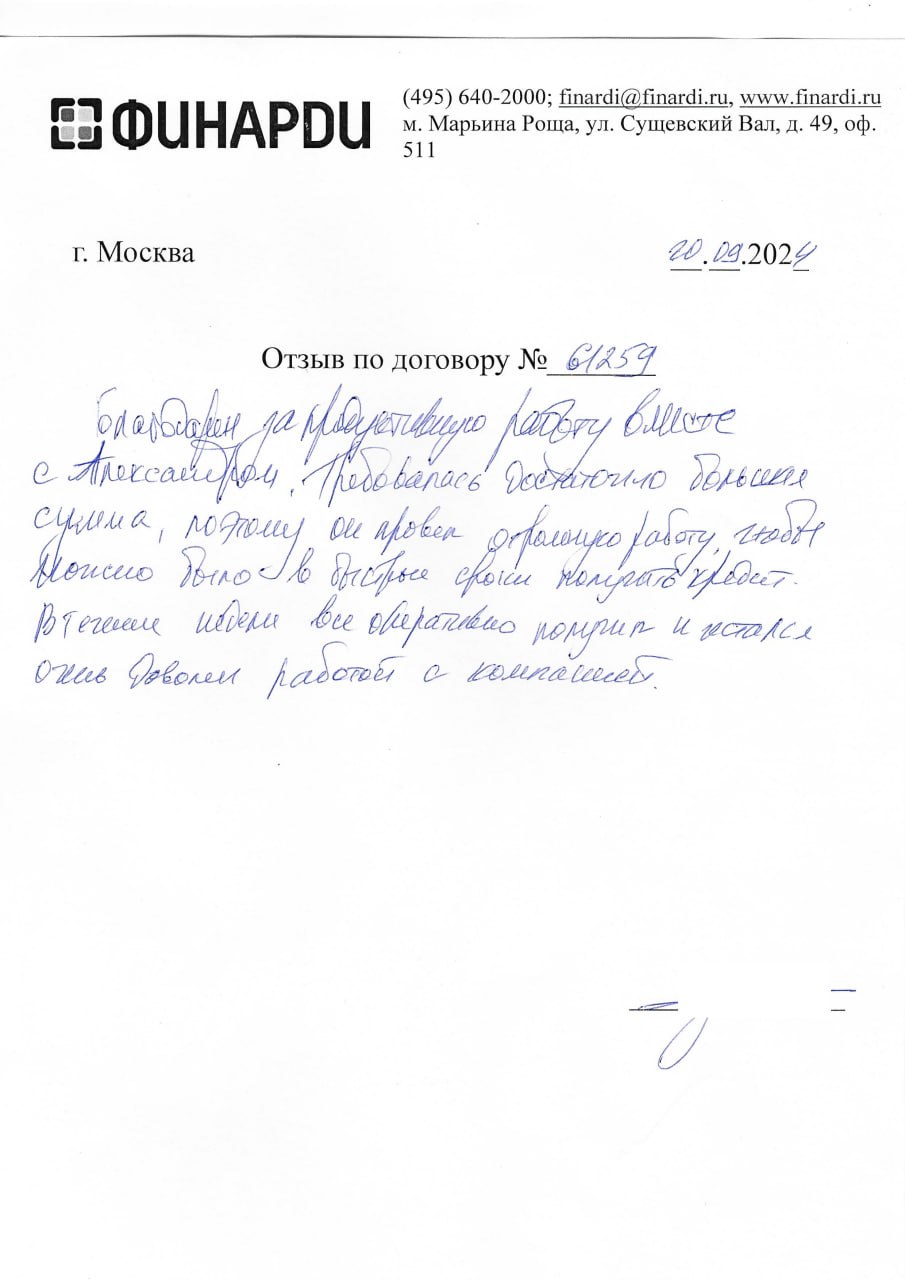 ФИНАРДИ
(495) 640-2000; finardi@finardi.ru, www.finardi.ru
м. Марьина Роща, ул. Сущевский Вал, д. 49, оф.
511
г. Москва
20.09.2024
Отзыв по договору № 61259
Благодарен за продуктивную работу вместе
с Александром. Требовалась достаточно большая
сумма, поэтому он провел огромную работу, чтобы
можно было в быстрые сроки получить кредит.
В течение недели все оперативно получил и остался
очень доволен работой с компанией.